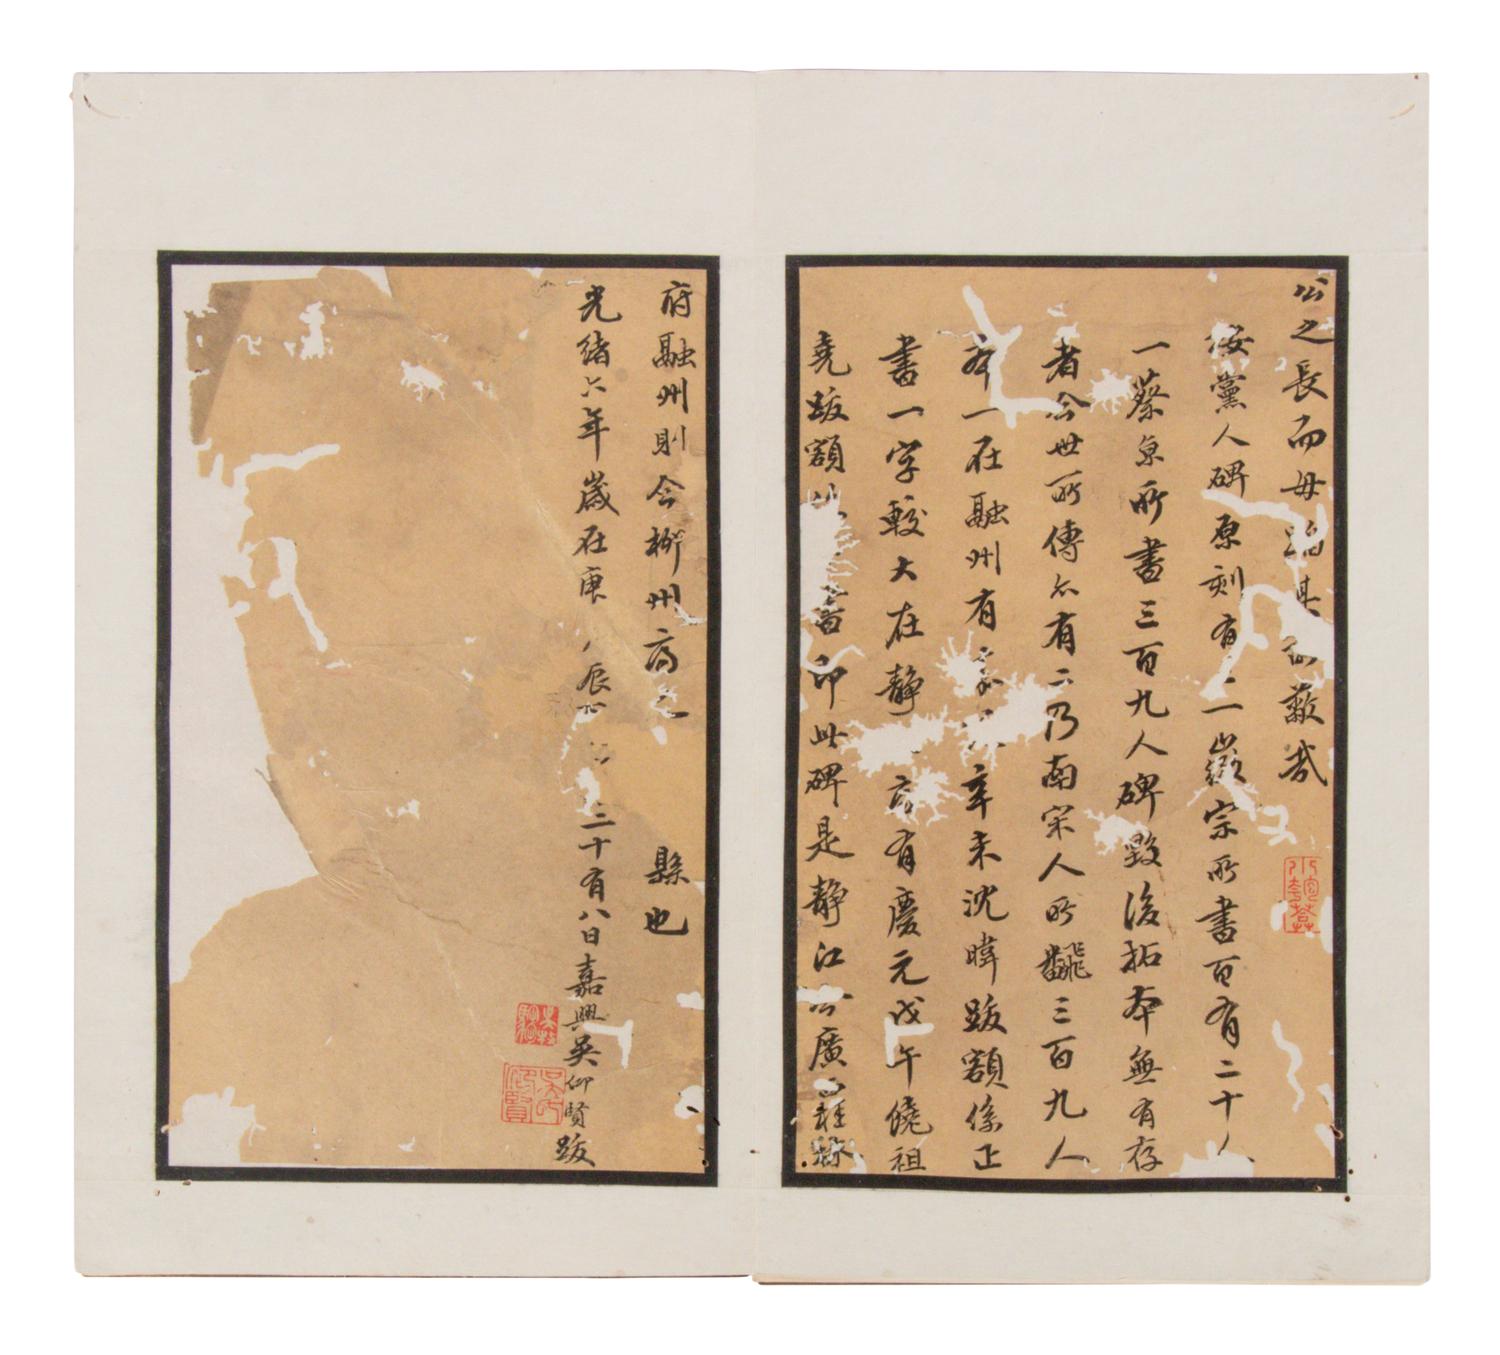 公之長而毋蹈其
敝哉
按黨人碑原刻有二一徽宗所書百有二十人
一蔡京所書三百九人碑毀後拓本無有存
者今世所傳亦有二乃南宋人所翻三百九人
本一在融州有辛未沈暐跋額係正
書一字較大在靜有慶元戊午饒祖
堯跋額書即此碑是靜江今廣
府融州則今柳州府之縣也
光緒六年歲在庚辰二十有八日嘉興吳仰賢跋